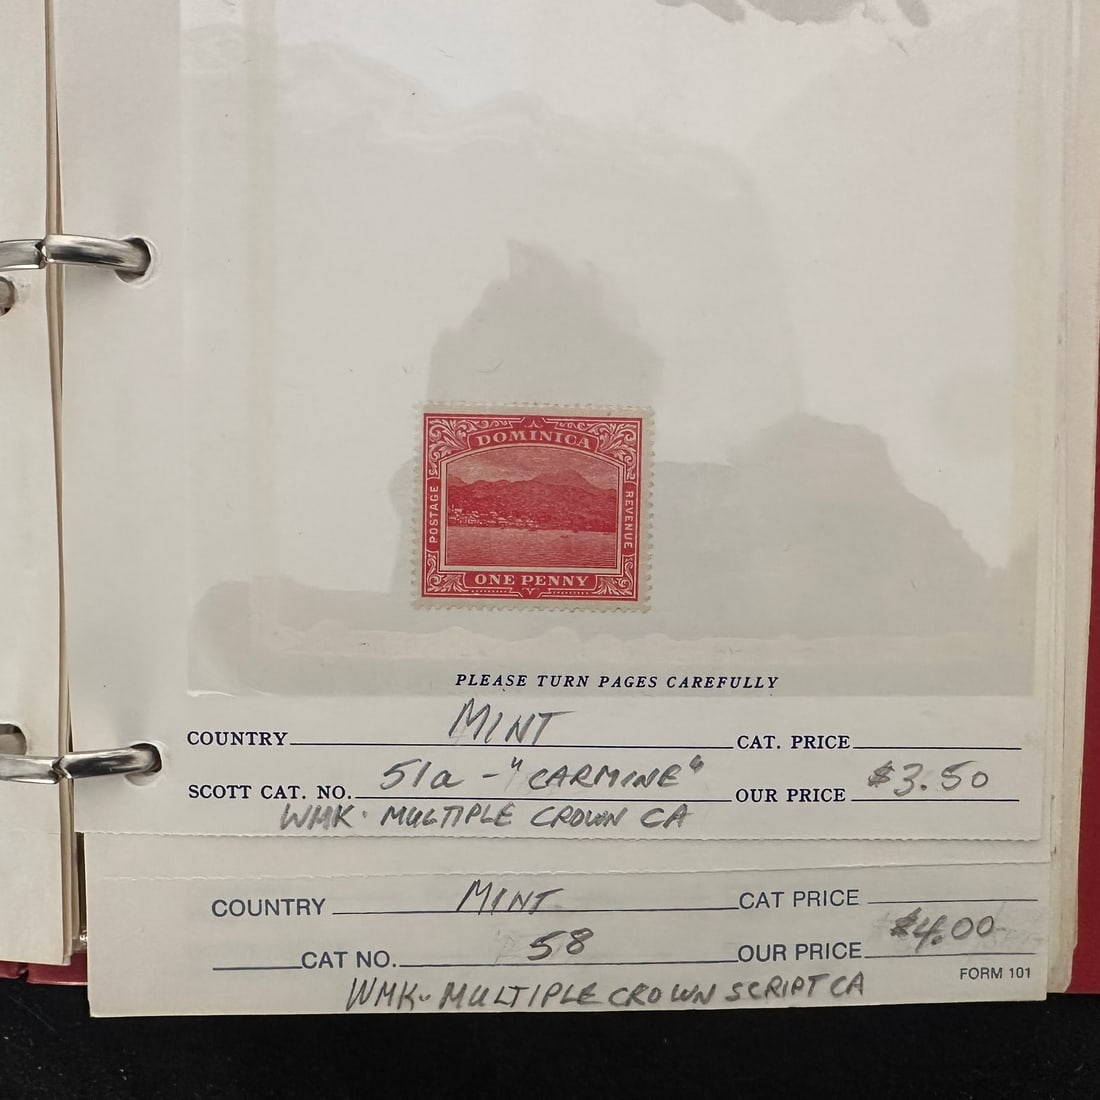 DOMINICA
POSTAGE
REVENUE
ONE PENNY
PLEASE TURN PAGES CAREFULLY
COUNTRY MINT CAT. PRICE
SCOTT CAT. NO. 51a - "CARMINE" OUR PRICE $3.50
WMK. MULTIPLE CROWN CA
COUNTRY MINT CAT PRICE
CAT NO. 58 OUR PRICE $4.00
FORM 101
WMK- MULTIPLE CROWN SCRIPT CA